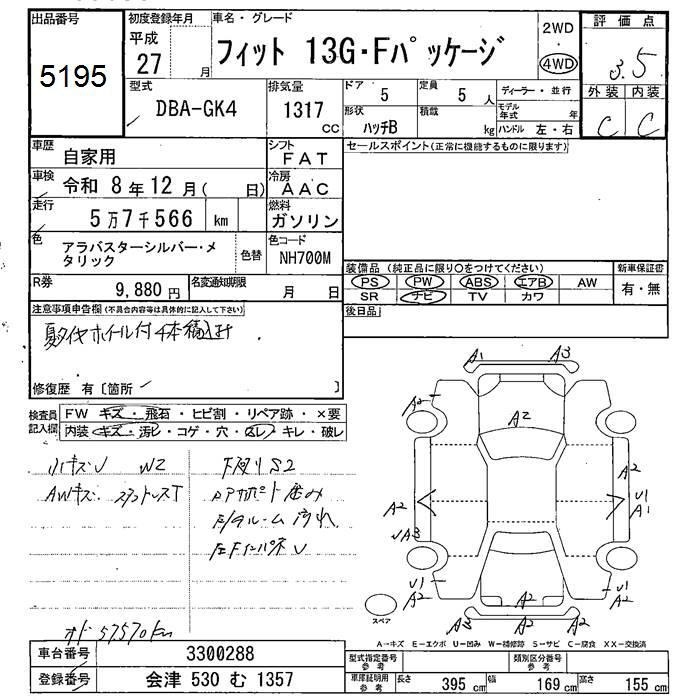 出品番号
5195
初度登録年月
平成
27 月
車名・グレード
フィット 13G・Fパッケージ
2WD
4WD
評価点
3.5
外装 内装
C C
型式
DBA-GK4
排気量
1317 CC
ドア
5
定員
5 人
ディーラー・並行
モデル年式 年
形状
ハッチB
積載
kg
ハンドル 左・右
車歴
自家用
シフト
FAT
セールスポイント(正常に機能するものに限ります)
車検
令和 8 年 12 月( 日)
冷房
AAC
走行
5 万 7 千 566 km
燃料
ガソリン
色
アラバスターシルバー・メタリック
色替
色コード
NH700M
R券
9,880 円
名変通知期限
月 日
装備品(純正品に限り○をつけてください)
PS PW ABS エアB AW
SR ナビ TV カワ
新車保証書
有・無
後日品
注意事項申告欄(不具合内容等は具体的に記入して下さい)
夏タイヤホイル付 4本積込み
修復歴 有〔箇所 〕
検査員記入欄
FW キズ・飛石・ヒビ割・リペア跡・×要
内装 キズ・汚レ・コゲ・穴・スレ・キレ・破レ
小キズU W2
AWキズ スタットレスT
下廻りS2
汚れ
オド57570km
A1 A3
A2
A2
A2
A2
U1
A1
A2
UA3
U1
A2
U1
A2
A2
A3 A2 A2
スペア
A-キズ E-エクボ U-凹み W-補修跡 S-サビ C-腐食 XX-交換済
車台番号
3300288
登録番号
会津 530 む 1357
型式指定番号
参考
類別区分番号
参考
車庫証明用
参考
長さ 395 cm 幅 169 cm 高さ 155 cm